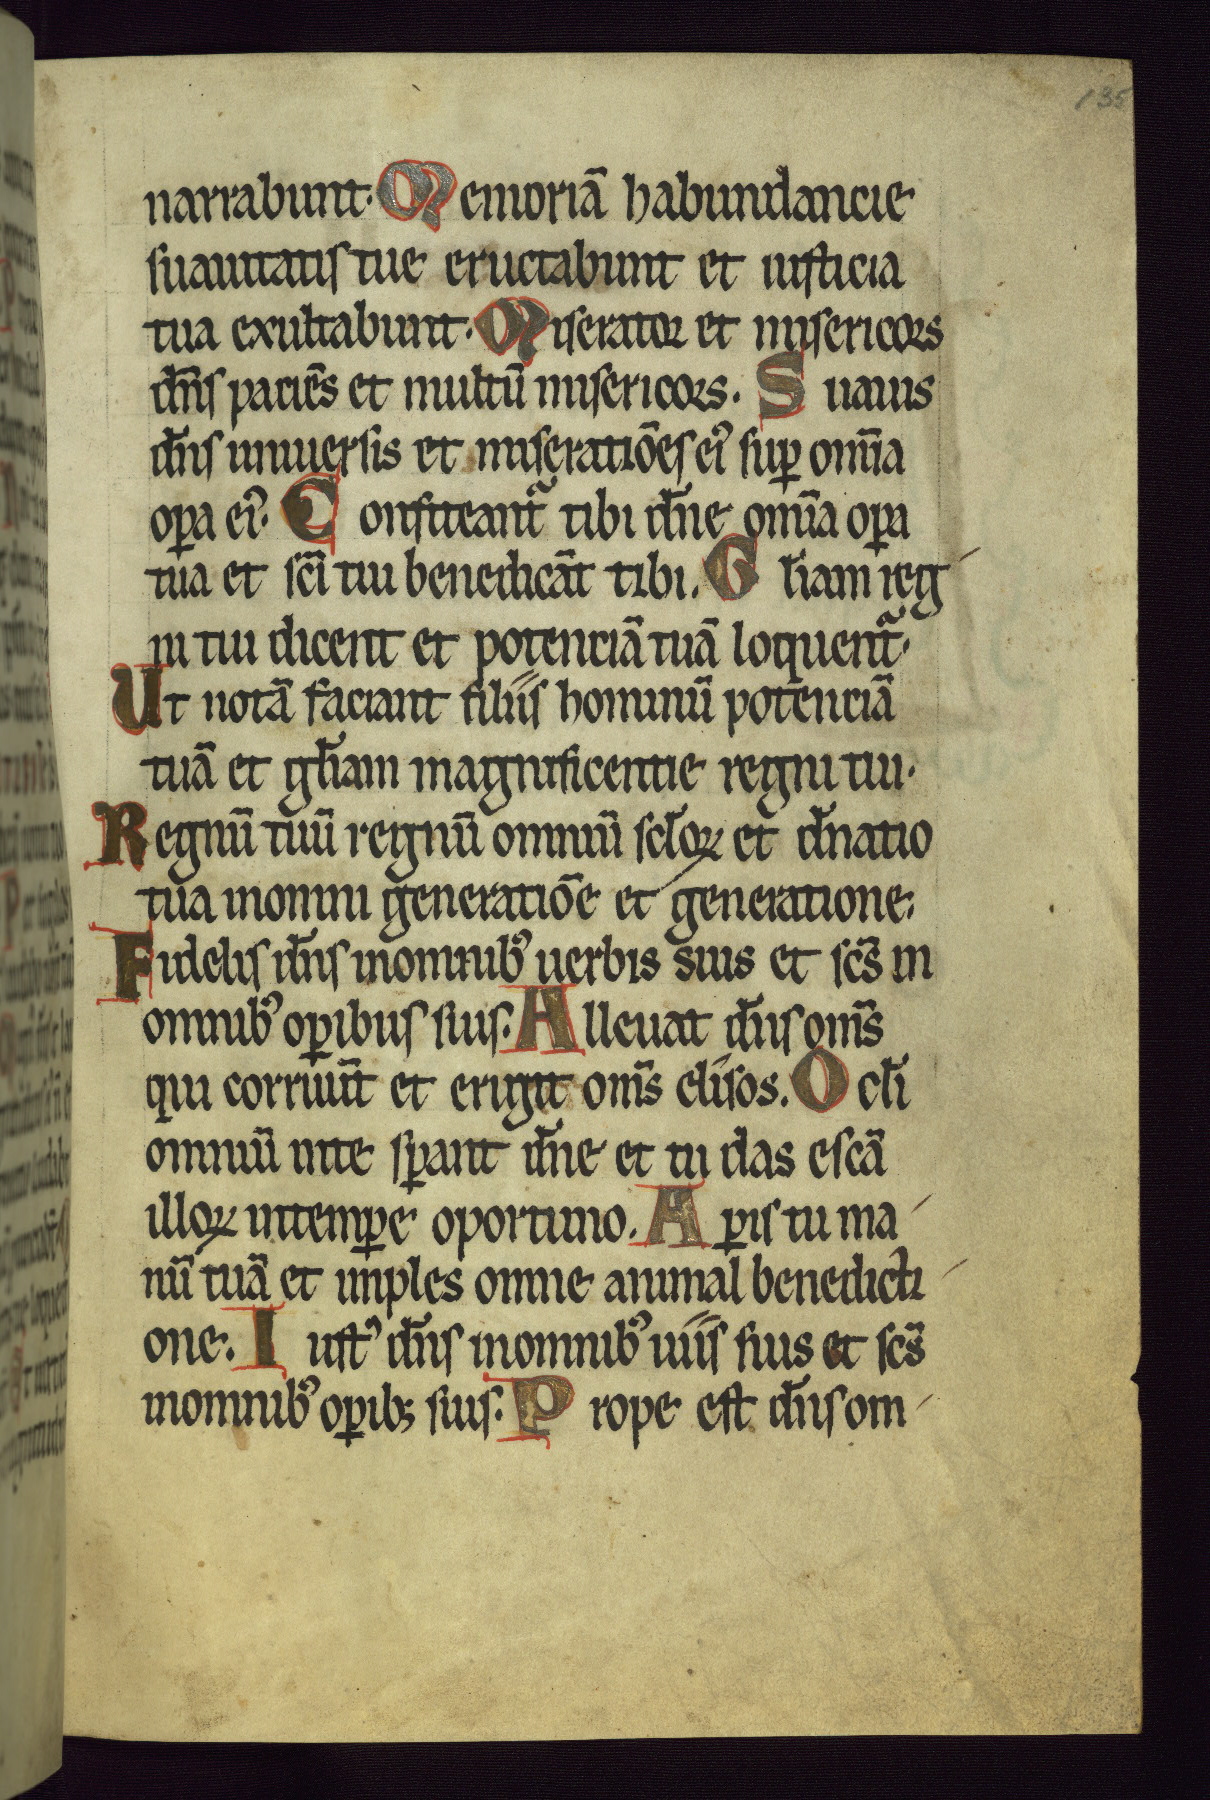 135
narrabunt. Memoriā habundancie
suauitatis tue eructabunt et iusticia
tua exultabunt. Miserator et misericors
dn̄s paciēs et multū misericors. Suauis
dn̄s uniuersis et miseratiōes eiꝰ suꝑ om̄ia
oꝑa eiꝰ. Confiteant᷑ tibi dn̄e om̄ia oꝑa
tua et sc̄i tui benedicāt tibi. Gl̄iam reg
ni tui dicent et potenciā tuā loquent᷑.
Ut notā faciant filiis hominū potenciā
tuā et gl̄iam magnificentie regni tui.
Regnū tuū regnū omniū scl̄oꝝ et dn̄atio
tua inomni generatiōe et generatione.
Fidelis dn̄s inomnibꝰ uerbis suis et sc̄s in
omnibꝰ oꝑibus suis. Alleuat dn̄s om̄s
qui corruūt et erigit om̄s elisos. Ocl̄i
omniū inte sꝑant dn̄e et tu das escā
illoꝝ intemꝑe oportuno. Aꝑis tu ma
nū tuā et imples omne animal benedicti
one. Iustꝰ dn̄s inomnibꝰ uiis suis et sc̄s
inomnibꝰ oꝑibꝫ suis. Prope est dn̄s om